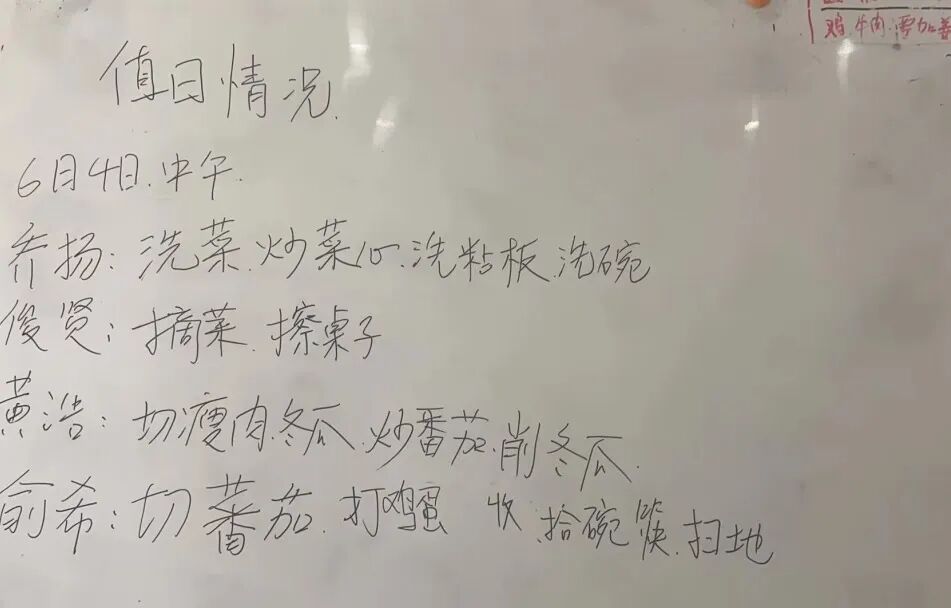 鸡.牛肉.需加姜
值日情况.
6月4日.中午.
乔扬:洗菜.炒菜心.洗粘板.洗碗
俊贤:摘菜.擦桌子
黄浩:切瘦肉.冬瓜.炒番茄.削冬瓜.
俞希:切蕃茄.打鸡蛋 收拾碗筷.扫地